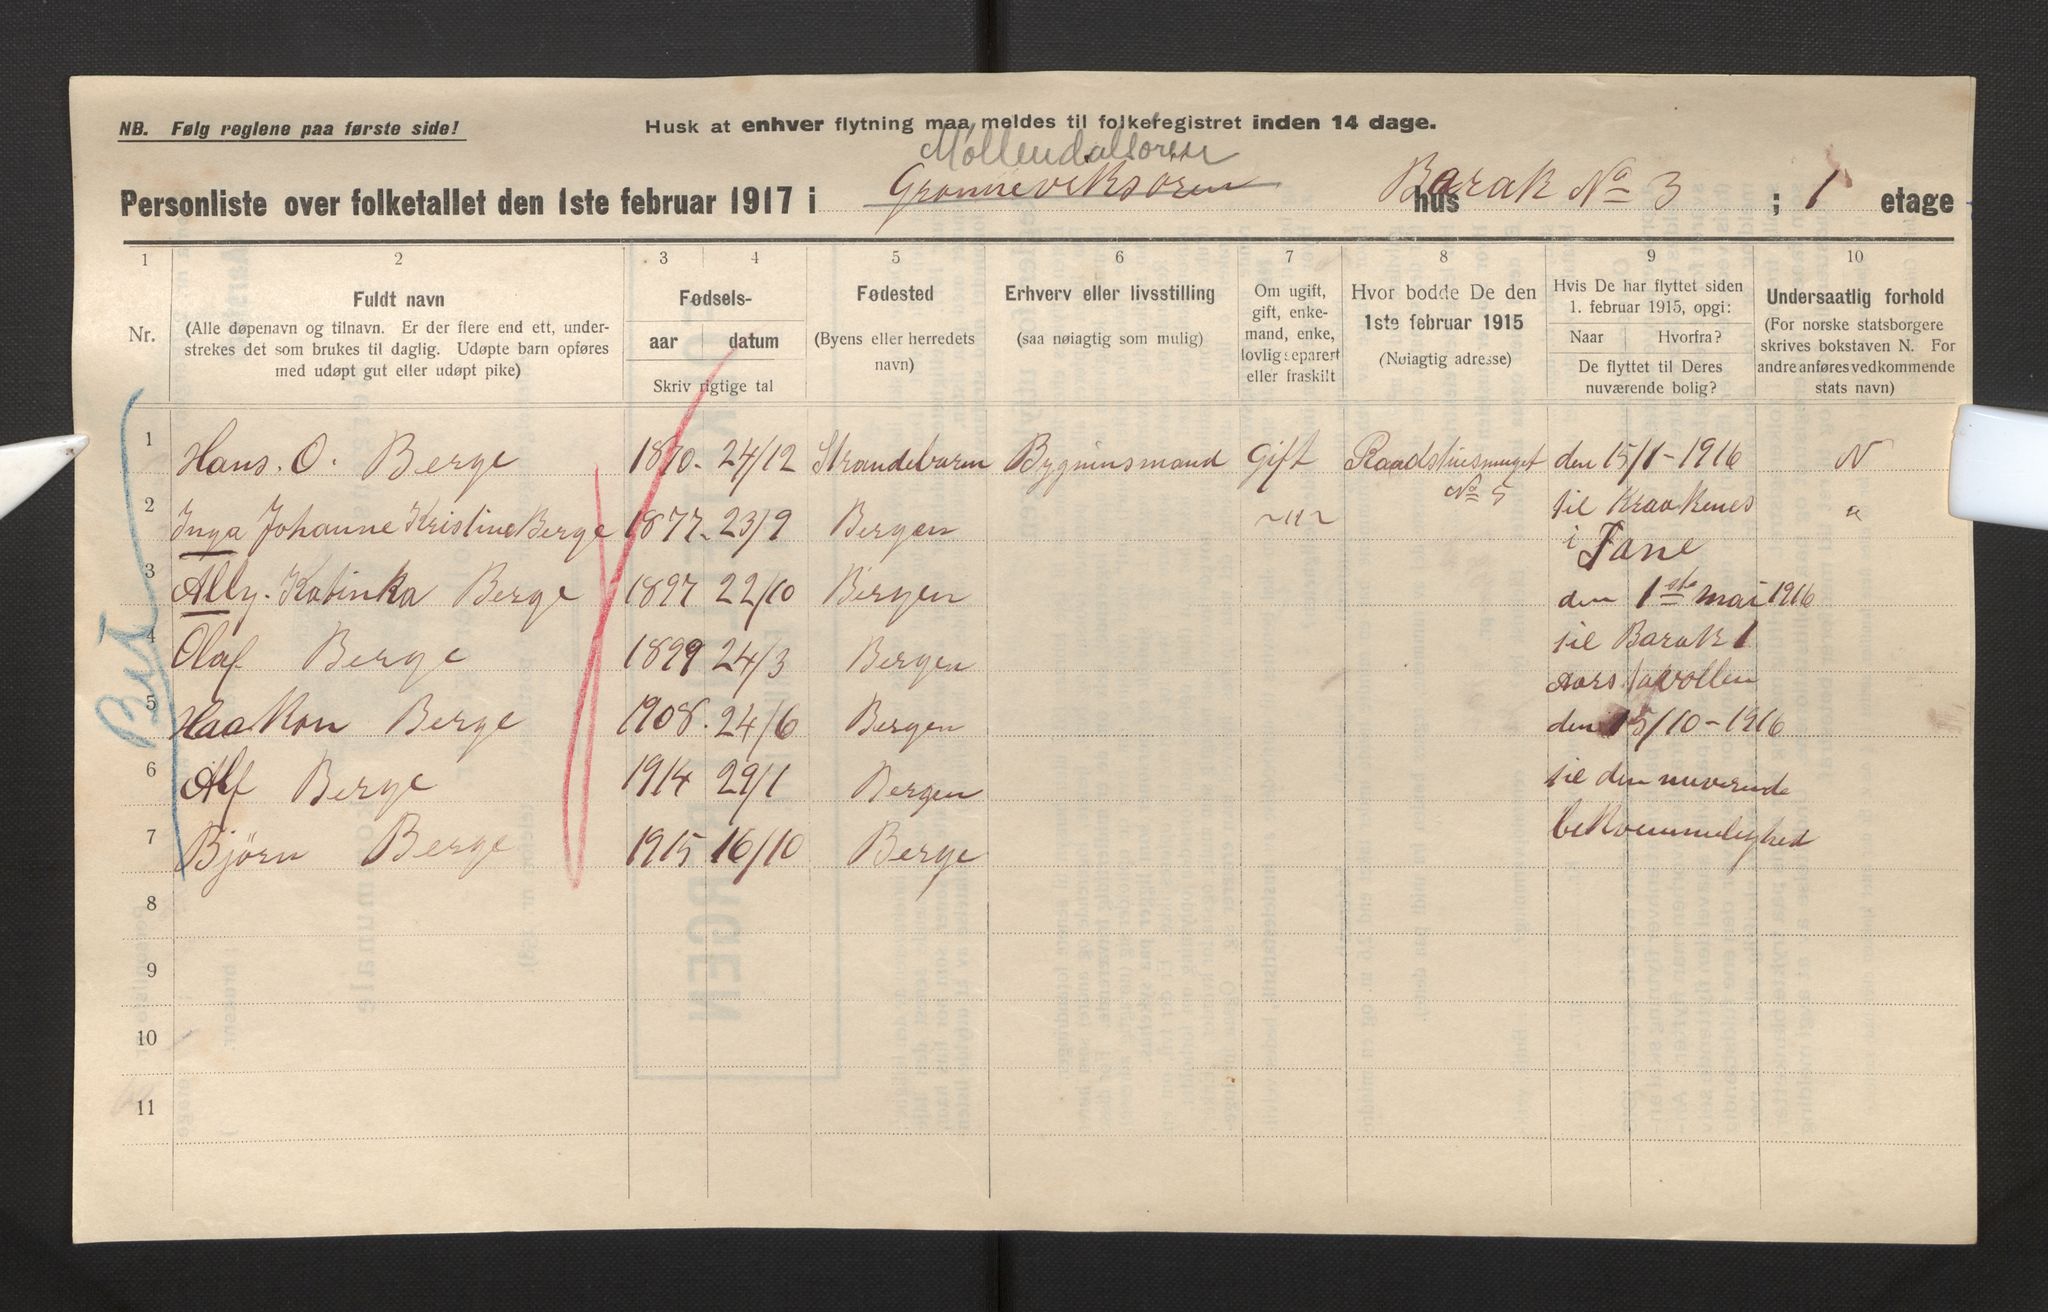 NB. Følg reglene paa første side!
Husk at enhver flytning maa meldes til folkeregistret inden 14 dage.
Møllendalsøren
Personliste over folketallet den 1ste februar 1917 i Grønneviksøren hus Barak No 3 ; 1 etage
1 2 3 4 5 6 7 8 9 10
Nr.
Fuldt navn
(Alle døpenavn og tilnavn. Er der flere end ett, under-
strekes det som brukes til daglig. Udøpte barn opføres
med udøpt gut eller udøpt pike)
Fødsels-
aar datum
Skriv rigtige tal
Fødested
(Byens eller herredets
navn)
Erhverv eller livsstilling
(saa nøiagtig som mulig)
Om ugift,
gift, enke-
mand, enke,
lovlig separert
eller fraskilt
Hvor bodde De den
1ste februar 1915
(Nøiagtig adresse)
Hvis De har flyttet siden
1. februar 1915, opgi:
Naar Hvorfra?
De flyttet til Deres
nuværende bolig?
Undersaatlig forhold
(For norske statsborgere
skrives bokstaven N. For
andre anføres vedkommende
stats navn)
1 Hans. O. Berge 1870. 24/12 Strandebarm Bygninsmand Gift Raadstuesmuget den 15/1-1916 N
No 5
2 Inga Johanne Kristine Berge 1877. 23/9 Bergen ~"~ til Kraakenes "
i Fane
3 Ally. Katinka Berge 1897 22/10 Bergen den 1ste mai 1916
4 Olaf Berge 1899 24/3 Bergen til Barak 1
Aarstavollen
5 Haakon Berge 1908. 24/6 Bergen den 15/10-1916
6 Alf Berge 1914 29/1 Bergen til den nuverende
7 Bjørn Berge 1915 16/10 Berge bekvemmelighed
8
9
10
11